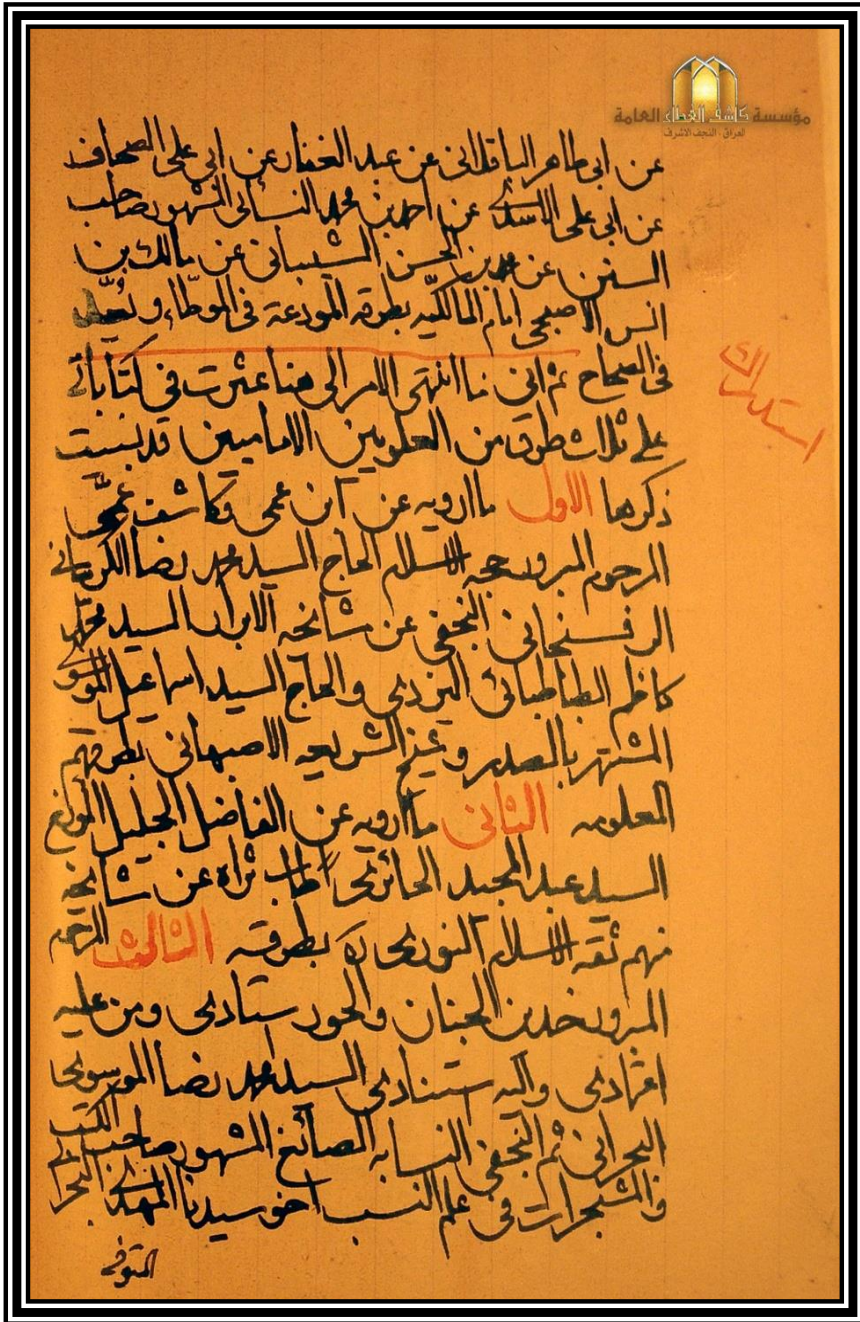 مؤسسة كاشف الغطاء العامة
العراق - النجف الاشرف
عن ابي طاهر الباقلاني عن عبد الغفار عن ابي علي الصحاف
عن ابي علي الاسدي عن احمد بن محمد النسائي الشهور صاحب
السنن عن محمد بن الحسن الشيباني عن مالك بن
انس الاصبحي امام المالكيه بطرقه المودعة في الموطا، و
في الصحاح ثم اني ما انتهى الامر الى هنا عثرت في كتاباتي
استدراك
على ثلاث طرق من العلويين الاماميين قد نسيت
ذكرها الاول ما ارويه عن ابن عمي وكاشف غمي
المرحوم المبرور حجه الاسلام الحاج السيد محمد رضا الكرماني
الرفسنجاني النجفي عن مشائخه الابرار السيد محمد
كاظم الطباطبائي اليزدي والحاج السيد اسماعيل الموسوي
المشتهر بالصدر وشيخ الشريعه الاصبهاني بطرقهم
المعلومه الثاني ما ارويه عن الفاضل الجليل المولع
السيد عبد المجيد الحائري طاب ثراه عن مشايخه
منهم ثقه الاسلام النوري ره بطرقه الثالث المرحوم
المبرور خدين الجنان والحور ستادي ومن عليه
اعتمادي واليه استنادي السيد محمد رضا الموسوي
البحراني ثم النجفي النسابه الصائغ المشهور صاحب الكتب
والمشجرات في علم النسب اخو سيدنا المهدي البحراني
المتوفى